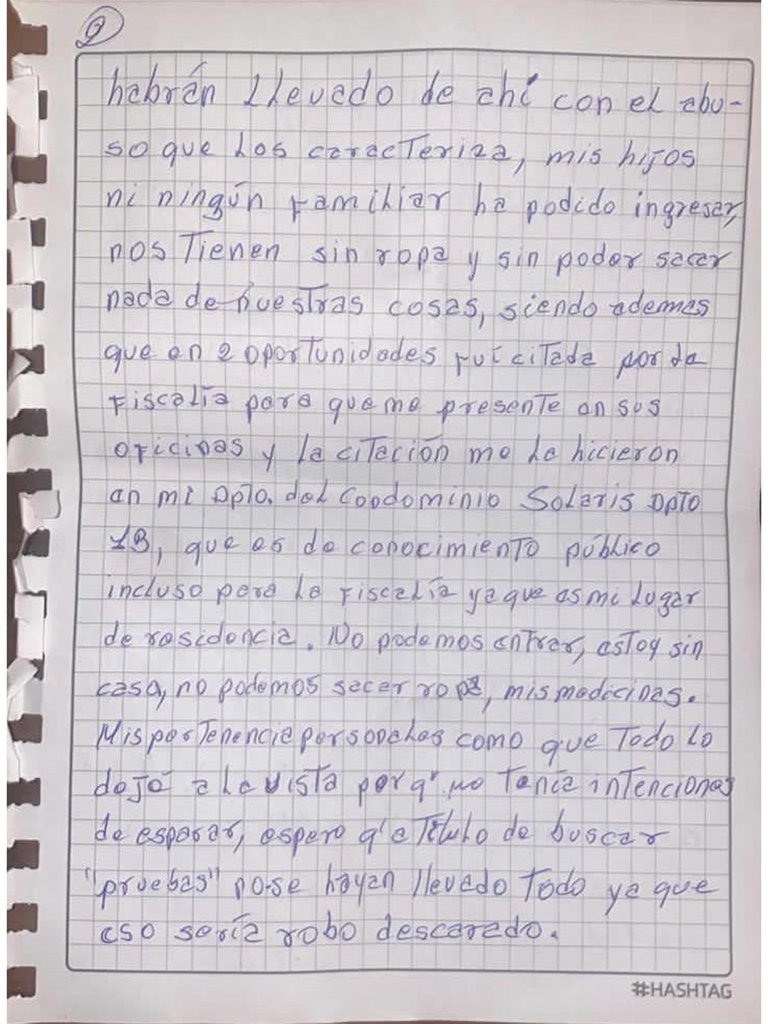 2
habrán llevado de ahí con el abu-
so que los caracteriza, mis hijos
ni ningún familiar ha podido ingresar,
nos tienen sin ropa y sin poder sacar
nada de nuestras cosas, siendo ademas
que en 2 oportunidades fuí citada por la
Fiscalía para que me presente en sus
oficinas y la citación me la hicieron
en mi Dpto. del Condominio Solaris Dpto
1B, que es de conocimiento público
incluso para la Fiscalía ya que es mi lugar
de residencia. No podemos entrar, estoy sin
casa, no podemos sacar ropa, mis medicinas.
Mis pertenencia personales como que todo lo
dejé a la vista por q' no tenía intenciones
de esperar, espero q' a título de buscar
"pruebas" no se hayan llevado todo ya que
eso sería robo descarado.
#HASHTAG